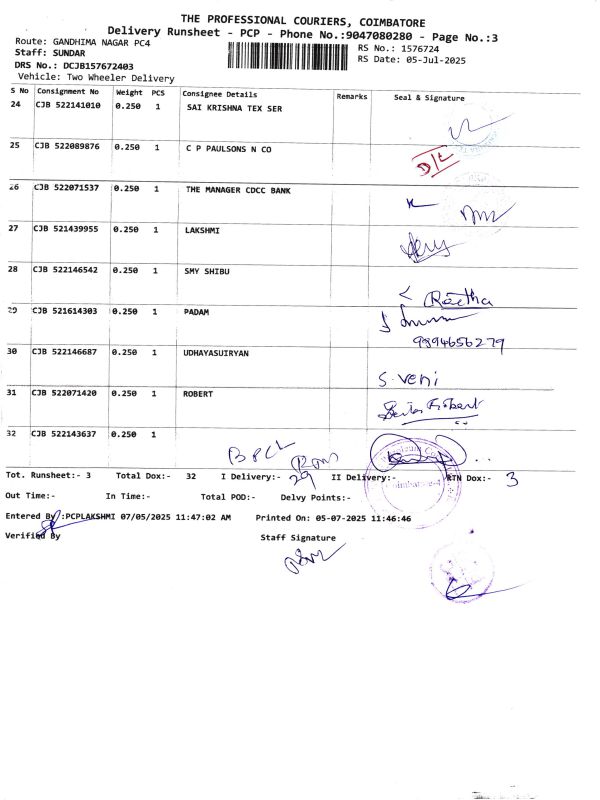 THE PROFESSIONAL COURIERS, COIMBATORE
Delivery Runsheet - PCP - Phone No.:9047080280 - Page No.:3
Route: GANDHIMA NAGAR PC4
RS No.: 1576724
Staff: SUNDAR
RS Date: 05-Jul-2025
DRS No.: DCJB157672403
Vehicle: Two Wheeler Delivery
S No Consignment No Weight PCS Consignee Details Remarks Seal & Signature
24 CJB 522141010 0.250 1 SAI KRISHNA TEX SER
25 CJB 522089876 0.250 1 C P PAULSONS N CO D/L
26 CJB 522071537 0.250 1 THE MANAGER CDCC BANK
27 CJB 521439955 0.250 1 LAKSHMI
28 CJB 522146542 0.250 1 SMY SHIBU
Reetha
29 CJB 521614303 0.250 1 PADAM
9894656279
30 CJB 522146687 0.250 1 UDHAYASUIRYAN
S. Veni
31 CJB 522071420 0.250 1 ROBERT
Robert
32 CJB 522143637 0.250 1
BPCL
Tot. Runsheet:- 3 Total Dox:- 32 I Delivery:- 29 II Delivery:- RTN Dox:- 3
Out Time:- In Time:- Total POD:- Delvy Points:-
Entered By :PCPLAKSHMI 07/05/2025 11:47:02 AM Printed On: 05-07-2025 11:46:46
Verified By Staff Signature